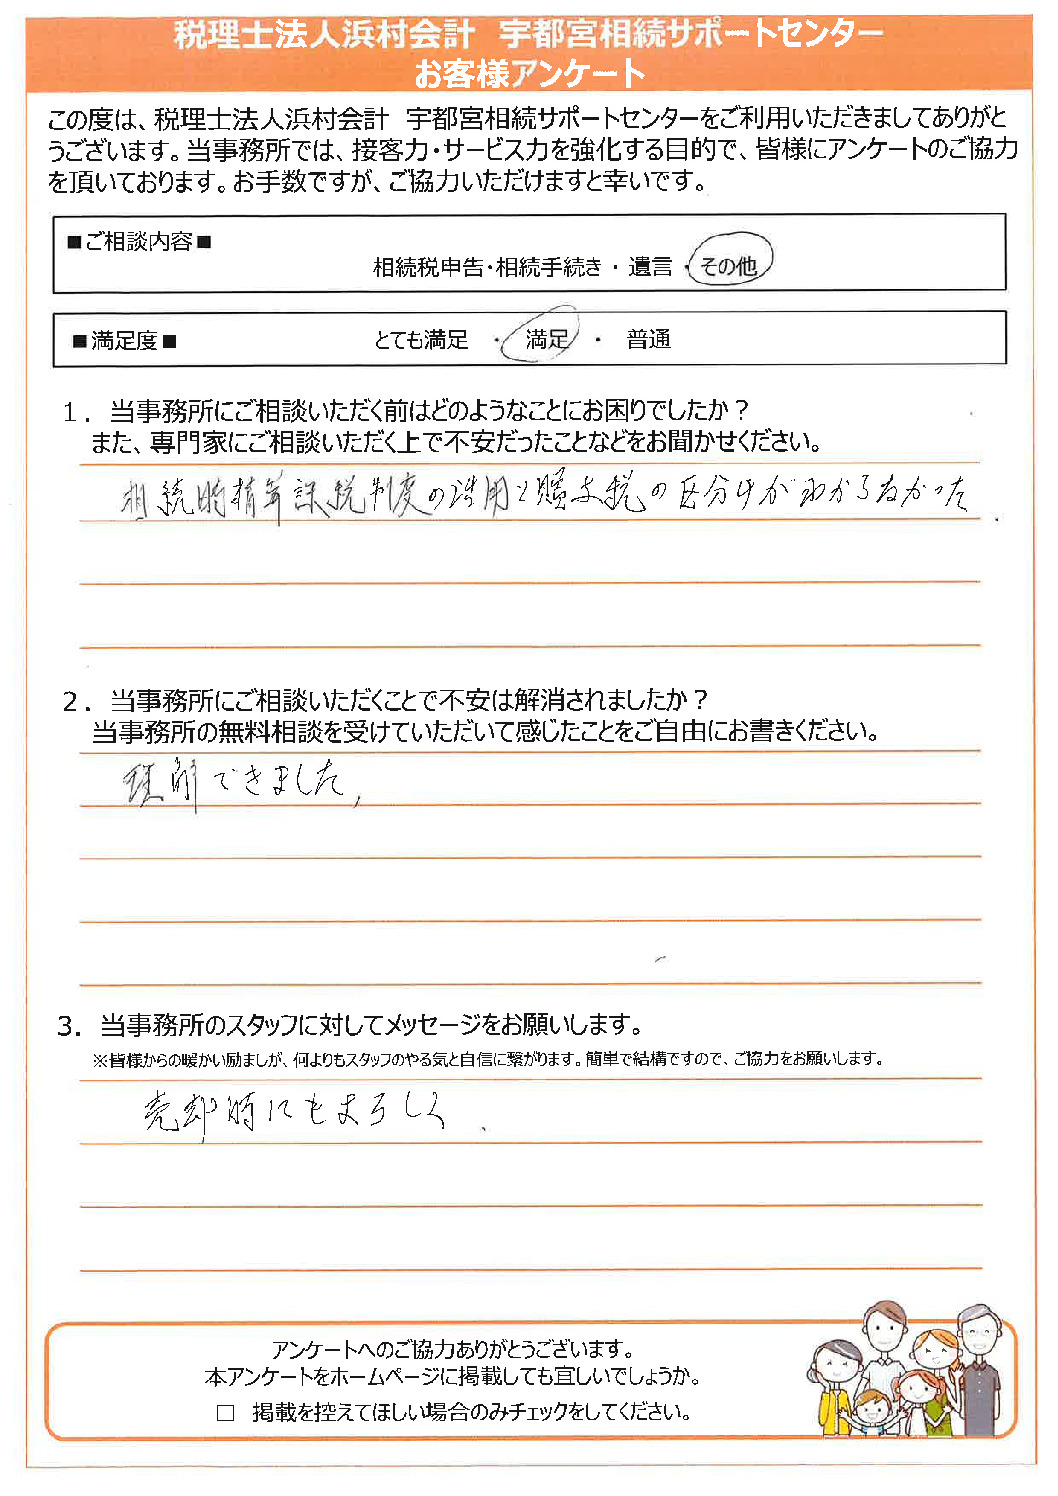 税理士法人浜村会計　宇都宮相続サポートセンター
お客様アンケート
この度は、税理士法人浜村会計　宇都宮相続サポートセンターをご利用いただきましてありがと
うございます。当事務所では、接客力・サービス力を強化する目的で、皆様にアンケートのご協力
を頂いております。お手数ですが、ご協力いただけますと幸いです。
■ご相談内容■
相続税申告・相続手続き ・ 遺言 ・ その他
■満足度■　とても満足 ・ 満足 ・ 普通
１．当事務所にご相談いただく前はどのようなことにお困りでしたか？
また、専門家にご相談いただく上で不安だったことなどをお聞かせください。
相続時精算課税制度の活用と贈与税の区分けがわからなかった
２．当事務所にご相談いただくことで不安は解消されましたか？
当事務所の無料相談を受けていただいて感じたことをご自由にお書きください。
理解できました,
３．当事務所のスタッフに対してメッセージをお願いします。
※皆様からの暖かい励ましが、何よりもスタッフのやる気と自信に繋がります。簡単で結構ですので、ご協力をお願いします。
売却時にもよろしく.
アンケートへのご協力ありがとうございます。
本アンケートをホームページに掲載しても宜しいでしょうか。
□　掲載を控えてほしい場合のみチェックをしてください。